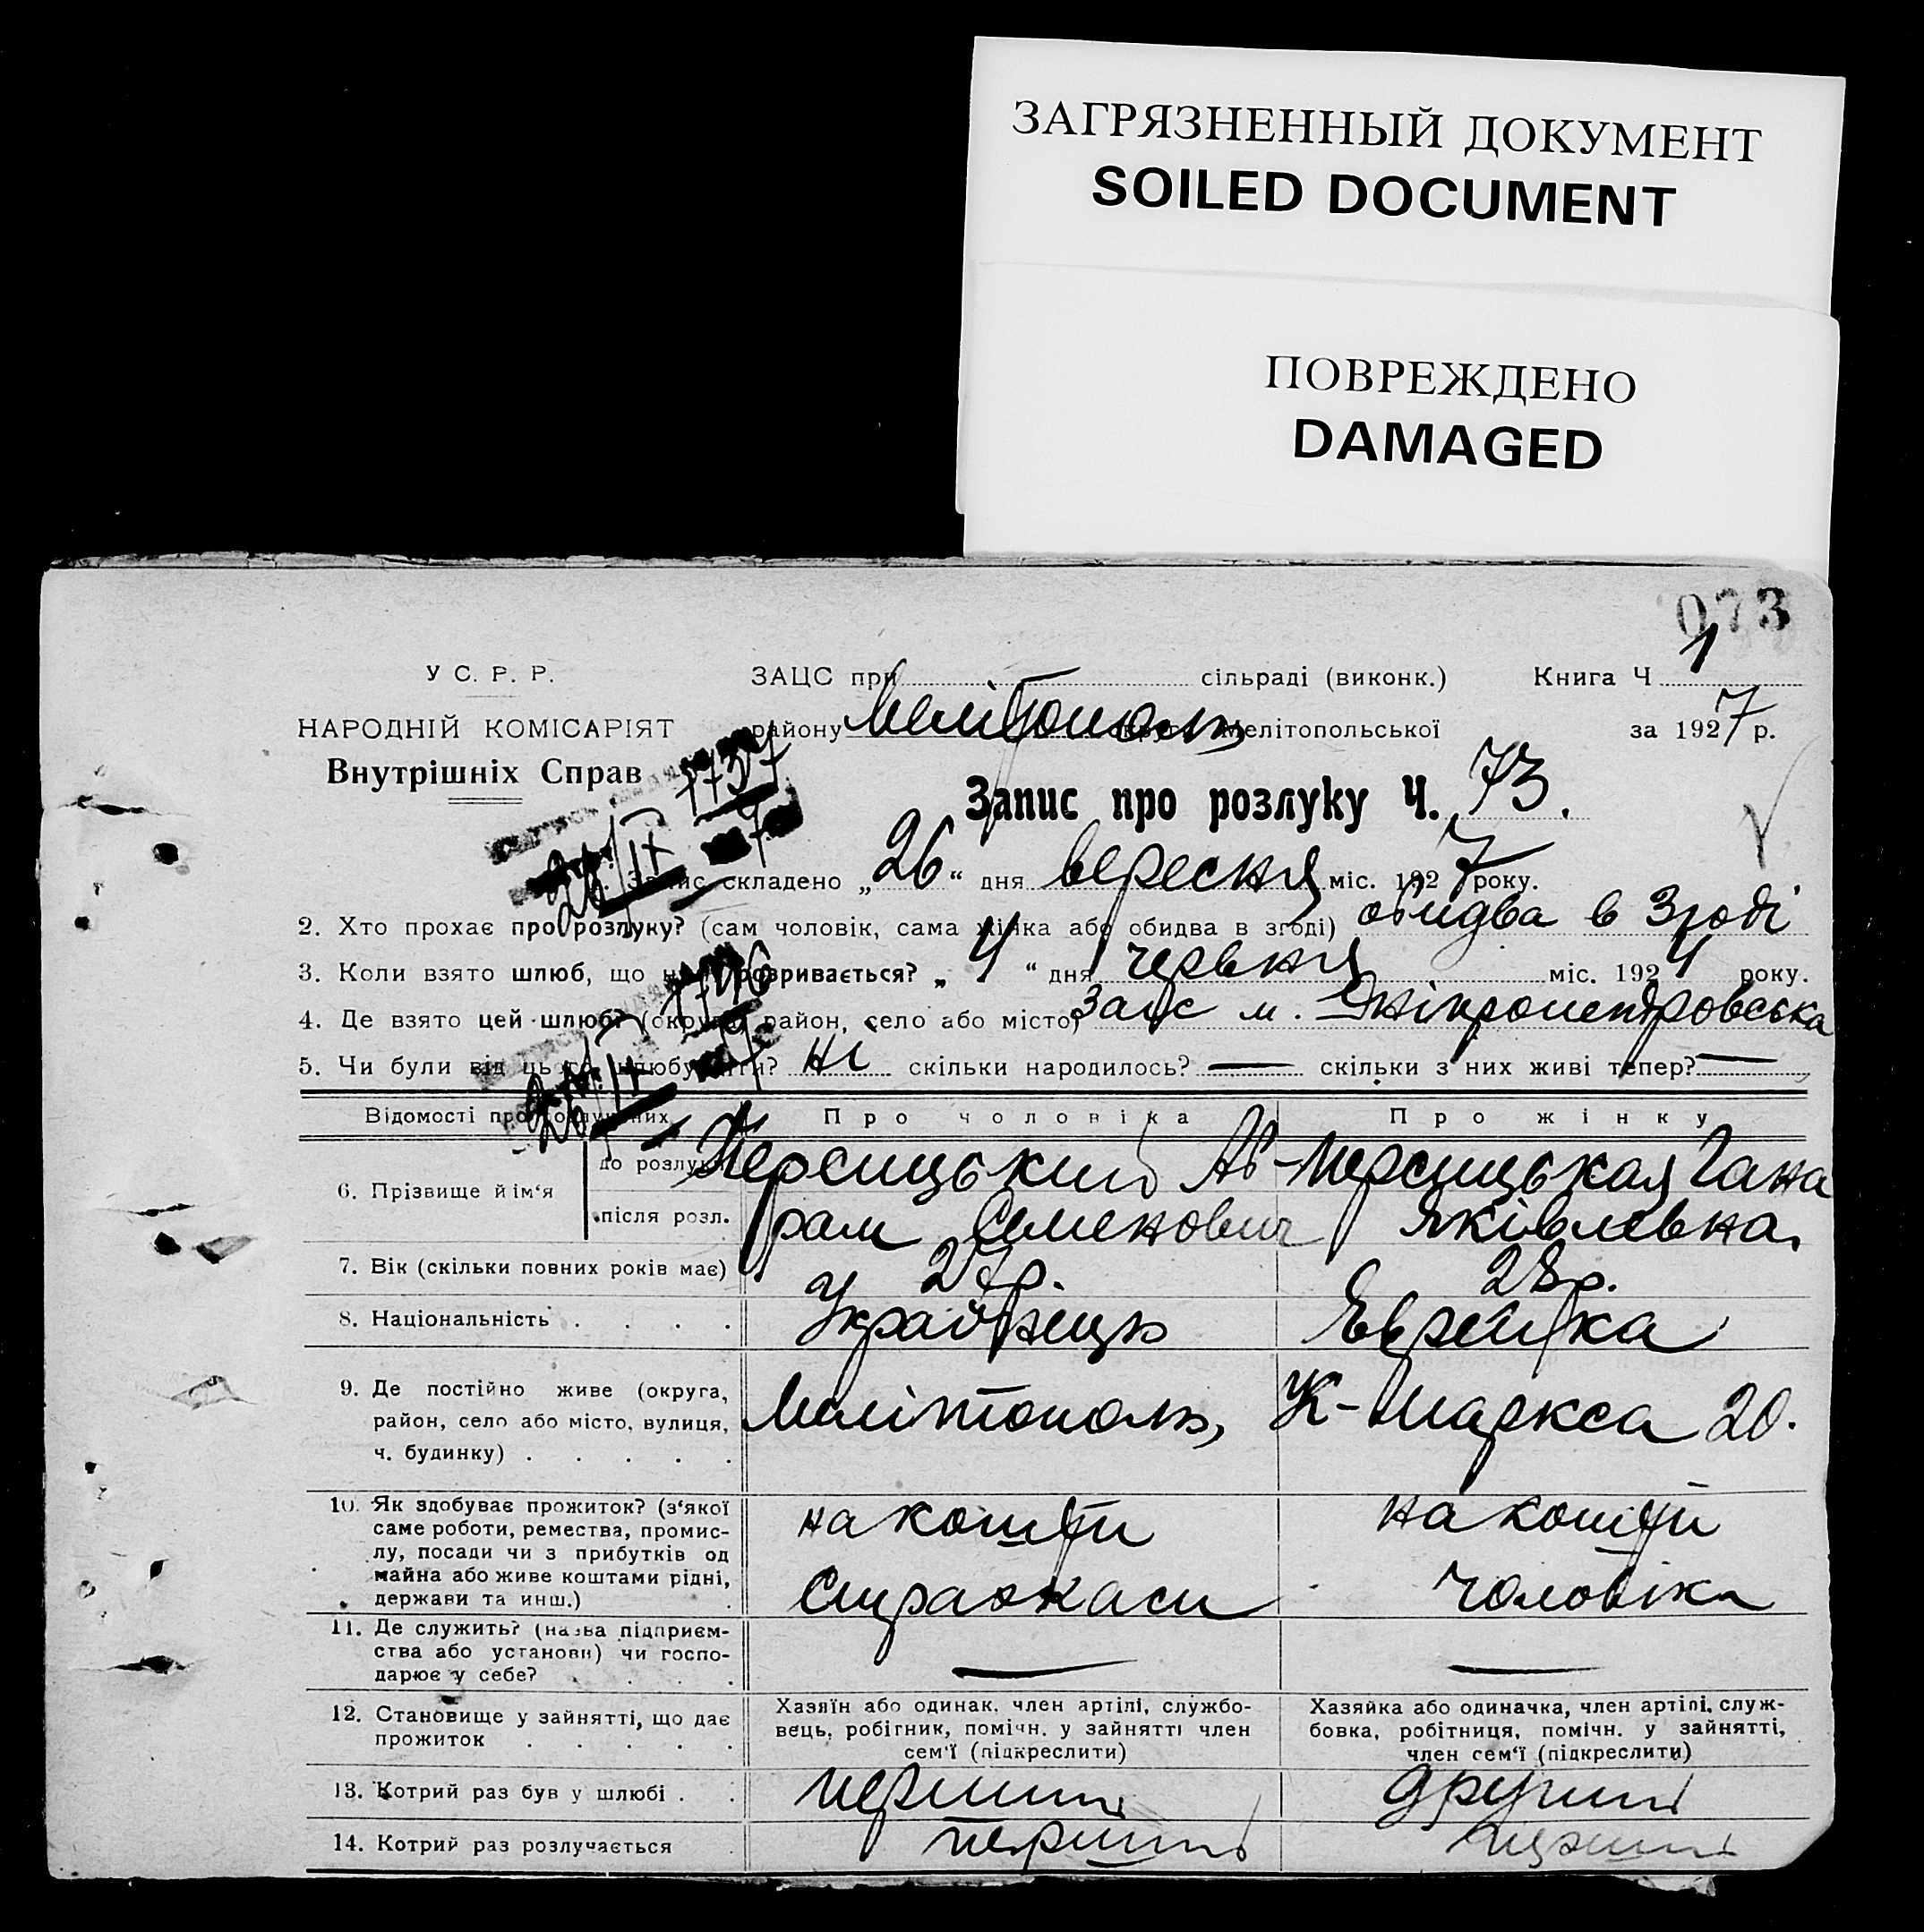 ЗАГРЯЗНЕННЫЙ ДОКУМЕНТ
SOILED DOCUMENT
ПОВРЕЖДЕНО
DAMAGED
073
У С. Р. Р.
ЗАЦС при сільраді (виконк.)
Книга Ч 1
НАРОДНІЙ КОМІСАРІЯТ
Внутрішніх Справ
району Мелітополь округи Мелітопольської
за 1927 р.
Запис про розлуку Ч. 73.
1737
26/IX
1. Запис складено „26“ дня вересня міс. 1927 року.
2. Хто прохає про розлуку? (сам чоловік, сама жінка або обидва в згоді) обидва в Згоді
3. Коли взято шлюб, що розривається? „4“ дня червня міс. 1924 року.
4. Де взято цей шлюб? (округа, район, село або місто) Загс м. Дніпропетровська
5. Чи були від цього шлюбу діти? Ні скільки народилось? — скільки з них живі тепер? —
1746
26/IX
Відомості про розлучених
Про чоловіка
Про жінку
6. Прізвище й ім‘я
до розлуки
після розл.
Персицький Аб-
рам Семенович
Персицькая Гана
Яківлевна.
7. Вік (скільки повних років має)
27р.
28р.
8. Національність . . . .
Українець
Еврейка
9. Де постійно живе (округа,
район, село або місто, вулиця,
ч. будинку) . . . . .
Мелітополь, К-Маркса 20.
10. Як здобуває прожиток? (з‘якої
саме роботи, ремества, промис-
лу, посади чи з прибутків од
майна або живе коштами рідні,
держави та инш.)
на кошти
Страхкаси
на кошти
чоловіка
11. Де служить? (назва підприєм-
ства або установи) чи госпо-
дарює у себе? . . . .
—
—
12. Становище у зайнятті, що дає
прожиток . . . . .
Хазяїн або одинак, член артілі, службо-
вець, робітник, помічн. у зайнятті член
сем‘ї (підкреслити)
Хазяйка або одиначка, член артілі, служ-
бовка, робітниця, помічн. у зайнятті,
член сем‘ї (підкреслити)
13. Котрий раз був у шлюбі . .
перший
другий
14. Котрий раз розлучається
перший
перший